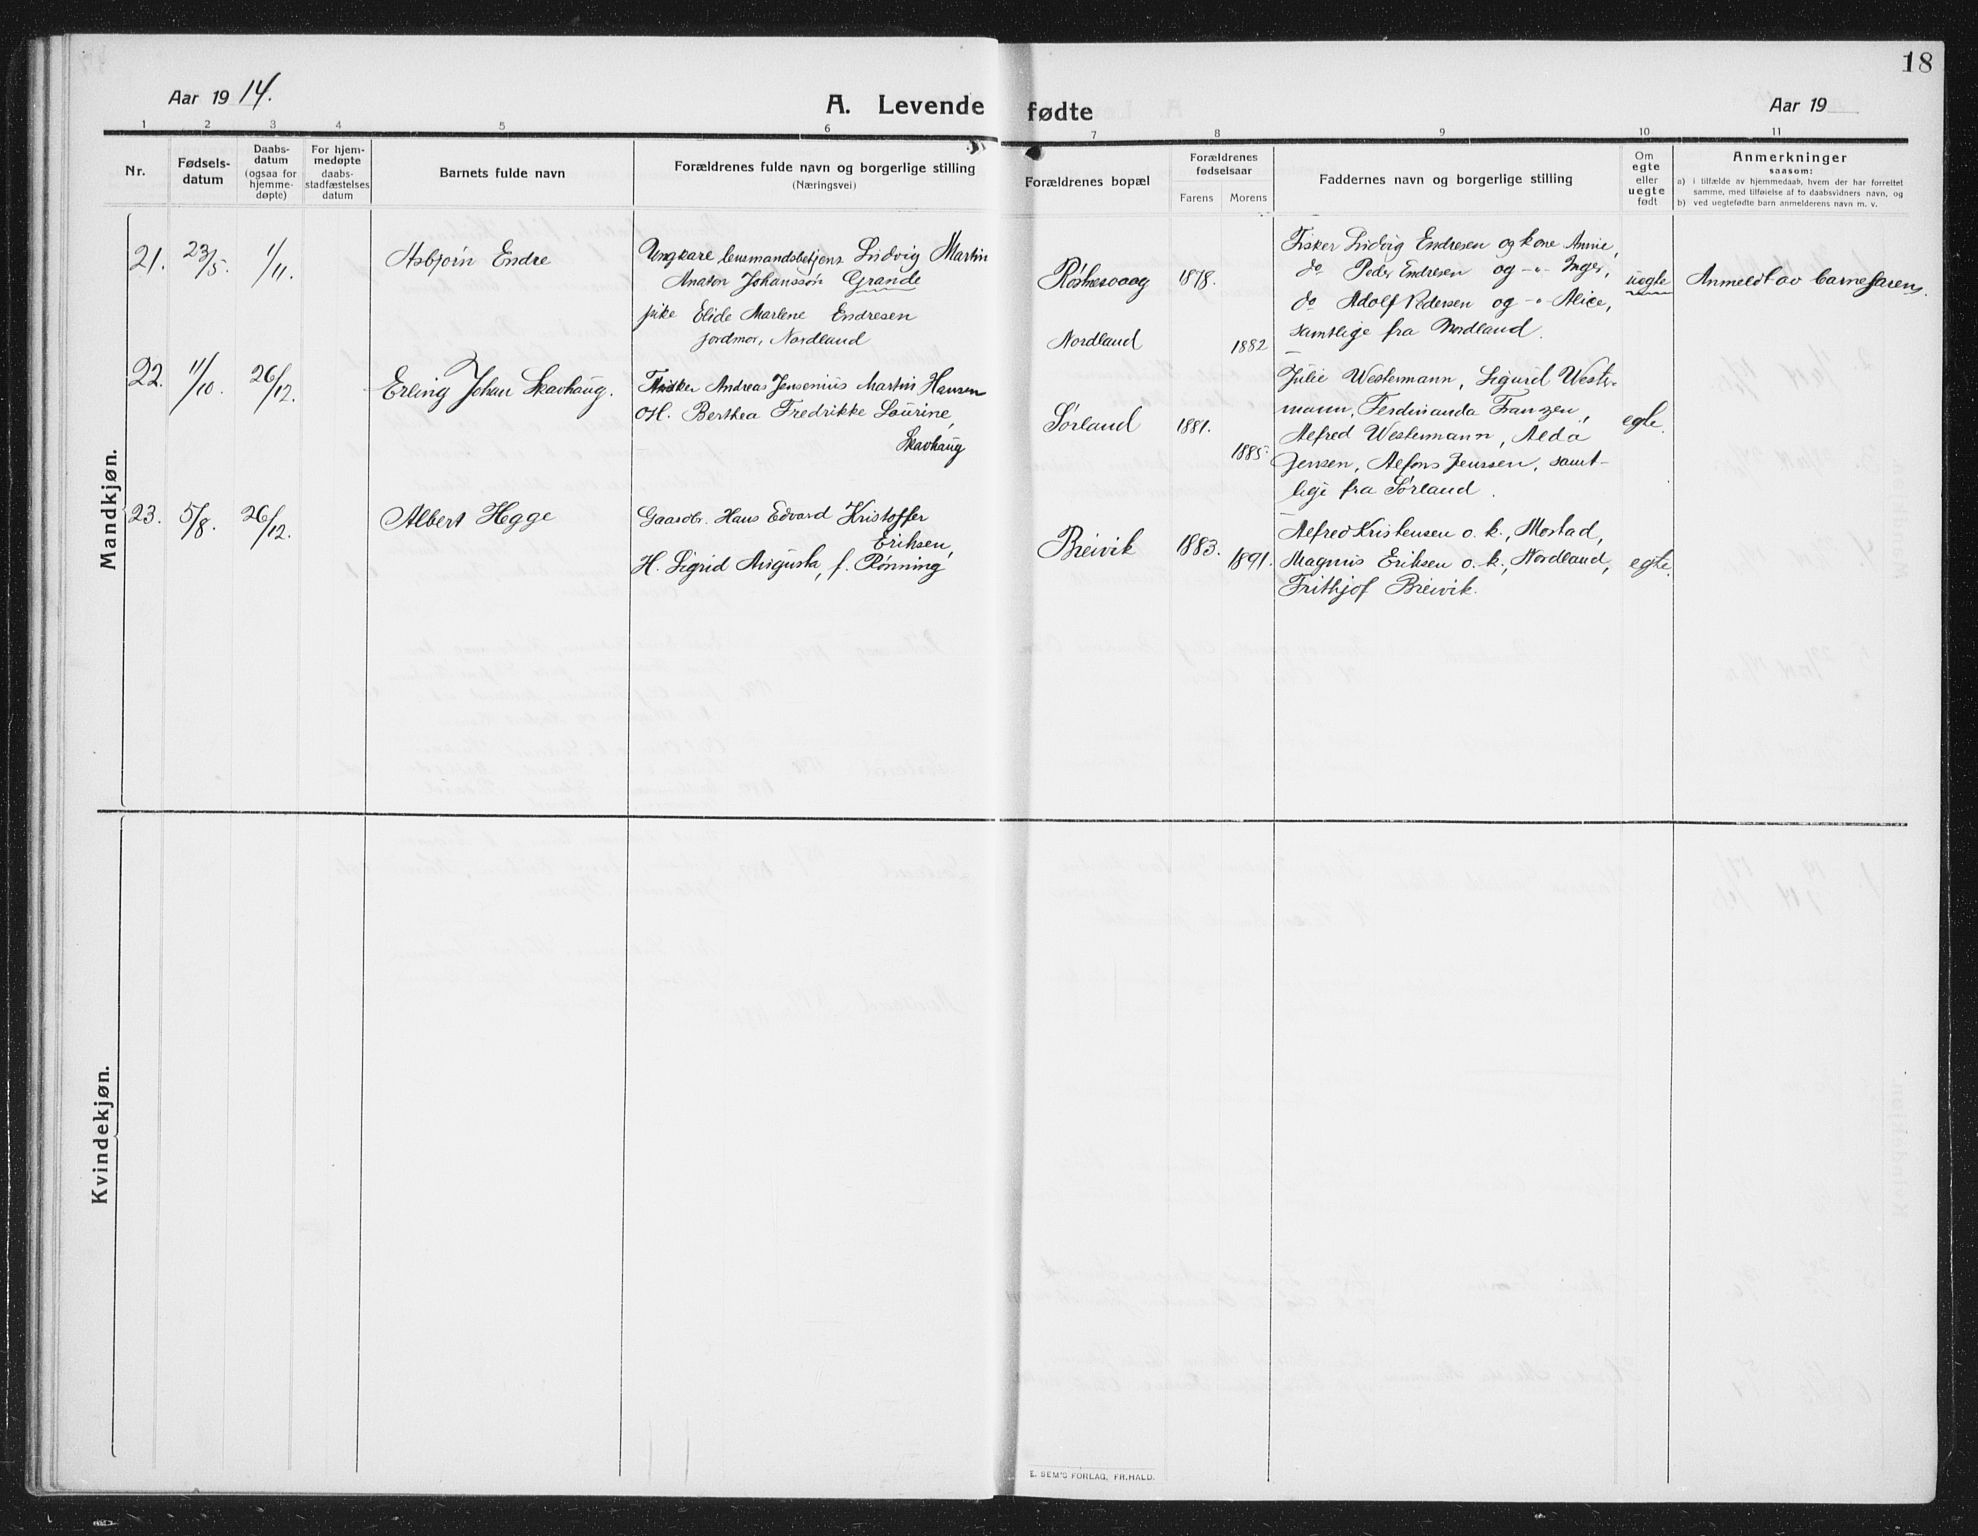 18
Aar 1914.
A. Levende fødte
Aar 19
1 2 3 4 5 6 7 8 9 10 11
Nr.
Fødsels-
datum
Daabs-
datum
(ogsaa for
hjemme-
døpte)
For hjem-
medøpte
daabs-
stadfæstelses
datum
Barnets fulde navn
Forældrenes fulde navn og borgerlige stilling
(Næringsvei)
Forældrenes bopæl
Forældrenes
fødselsaar
Farens Morens
Faddernes navn og borgerlige stilling
Om
egte
eller
uegte
født
Anmerkninger
saasom:
a) i tilfælde av hjemmedaab, hvem der har forrettet
samme, med tilføielse af to daabsvidners navn, og
b) ved uegtefødte barn anmelderens navn m. v.
Mandkjøn.
21. 23/5. 1/11.
Asbjørn Endre
Ungkare lensmandsbetjens Ludvig Martin
Anaton Johanssøn Grande
pike Elide Marlene Endresen
jordmor, Nordland
Røstnesvaag 1878.
Nordland 1882
Fisker Ludvig Endresen og kone Annie,
do Peder Endresen og -"- Inger,
do Adolf Pedersen og -"- Alice,
samtlige fra Nordland.
uegte
Anmeldt av barnefaren.
22. 11/10. 26/12.
Erling Johan Skavhaug.
Fisker Andreas Jensenius Martin Hansen
og H. Berthea Fredrikke Laurine,
Skavhaug
Sørland 1881.
1885.
Julie Westermann, Sigurd Wester-
mann, Ferdinanda Franzen,
Alfred Westermann, Alda
Jensen, Alfons Jenssen, samt-
lige fra Sørland.
egte.
23. 5/8. 26/12.
Albert Hegge
Gaardbr. Hans Edvard Kristoffer
Eriksen,
H. Sigrid Augusta, f. Rønning
Breivik 1883. 1891.
Alfred Kristensen o. k., Mostad,
Magnus Eriksen o. k., Nordland,
Frithjof Breivik.
egte.
Kvindekjøn.
E. SEM'S FORLAG, FR.HALD.